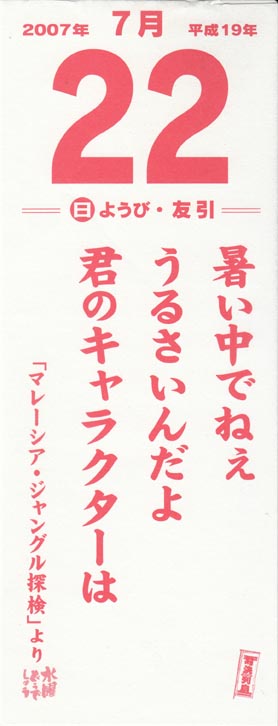 2007年 7月 平成19年
22
日ようび・友引
暑い中でねぇ
うるさいんだよ
君のキャラクターは
「マレーシア・ジャングル探検」より
水曜
どうで
しょう